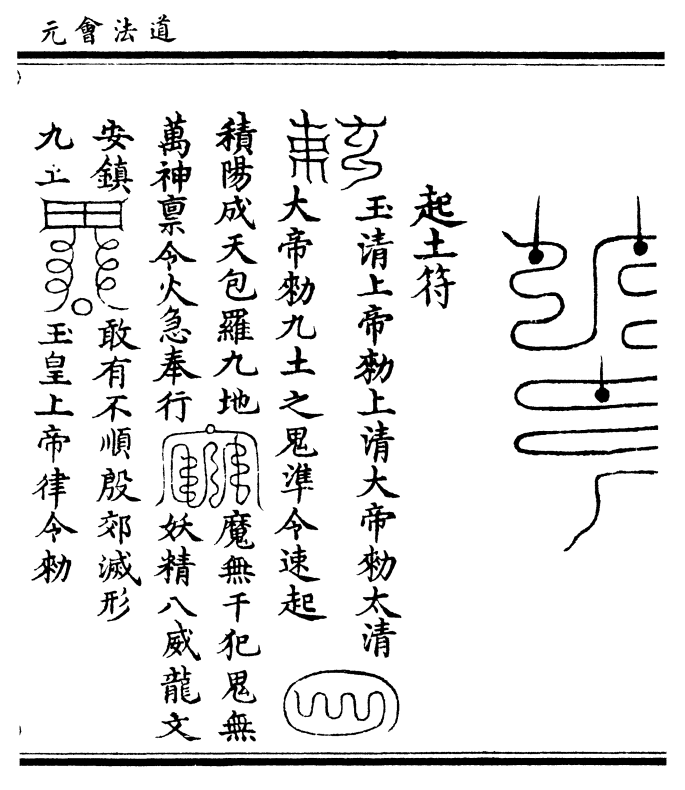 道法會元
起土符
玉清上帝勑上清大帝勑太清
大帝勑九土之鬼準令速起
積陽成天包羅九地 魔無干犯鬼無
萬神禀令火急奉行 妖精八威龍文
安鎮 敢有不順殷郊滅形
九土 玉皇上帝律令勑